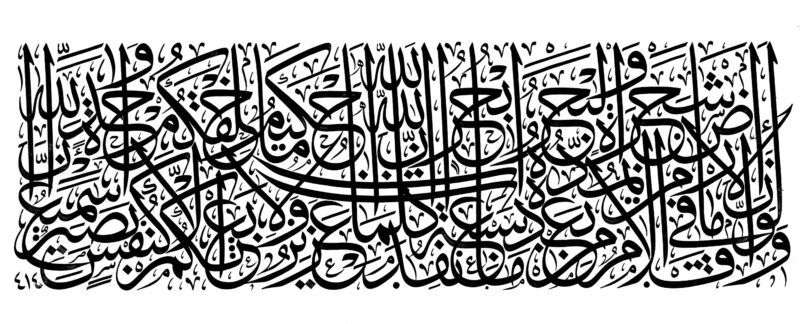 ولو أنما في الأرض من شجرة أقلام والبحر يمده من بعده سبعة أبحر ما نفدت كلمات الله إن الله عزيز حكيم ما خلقكم ولا بعثكم إلا كنفس واحدة إن الله سميع بصير